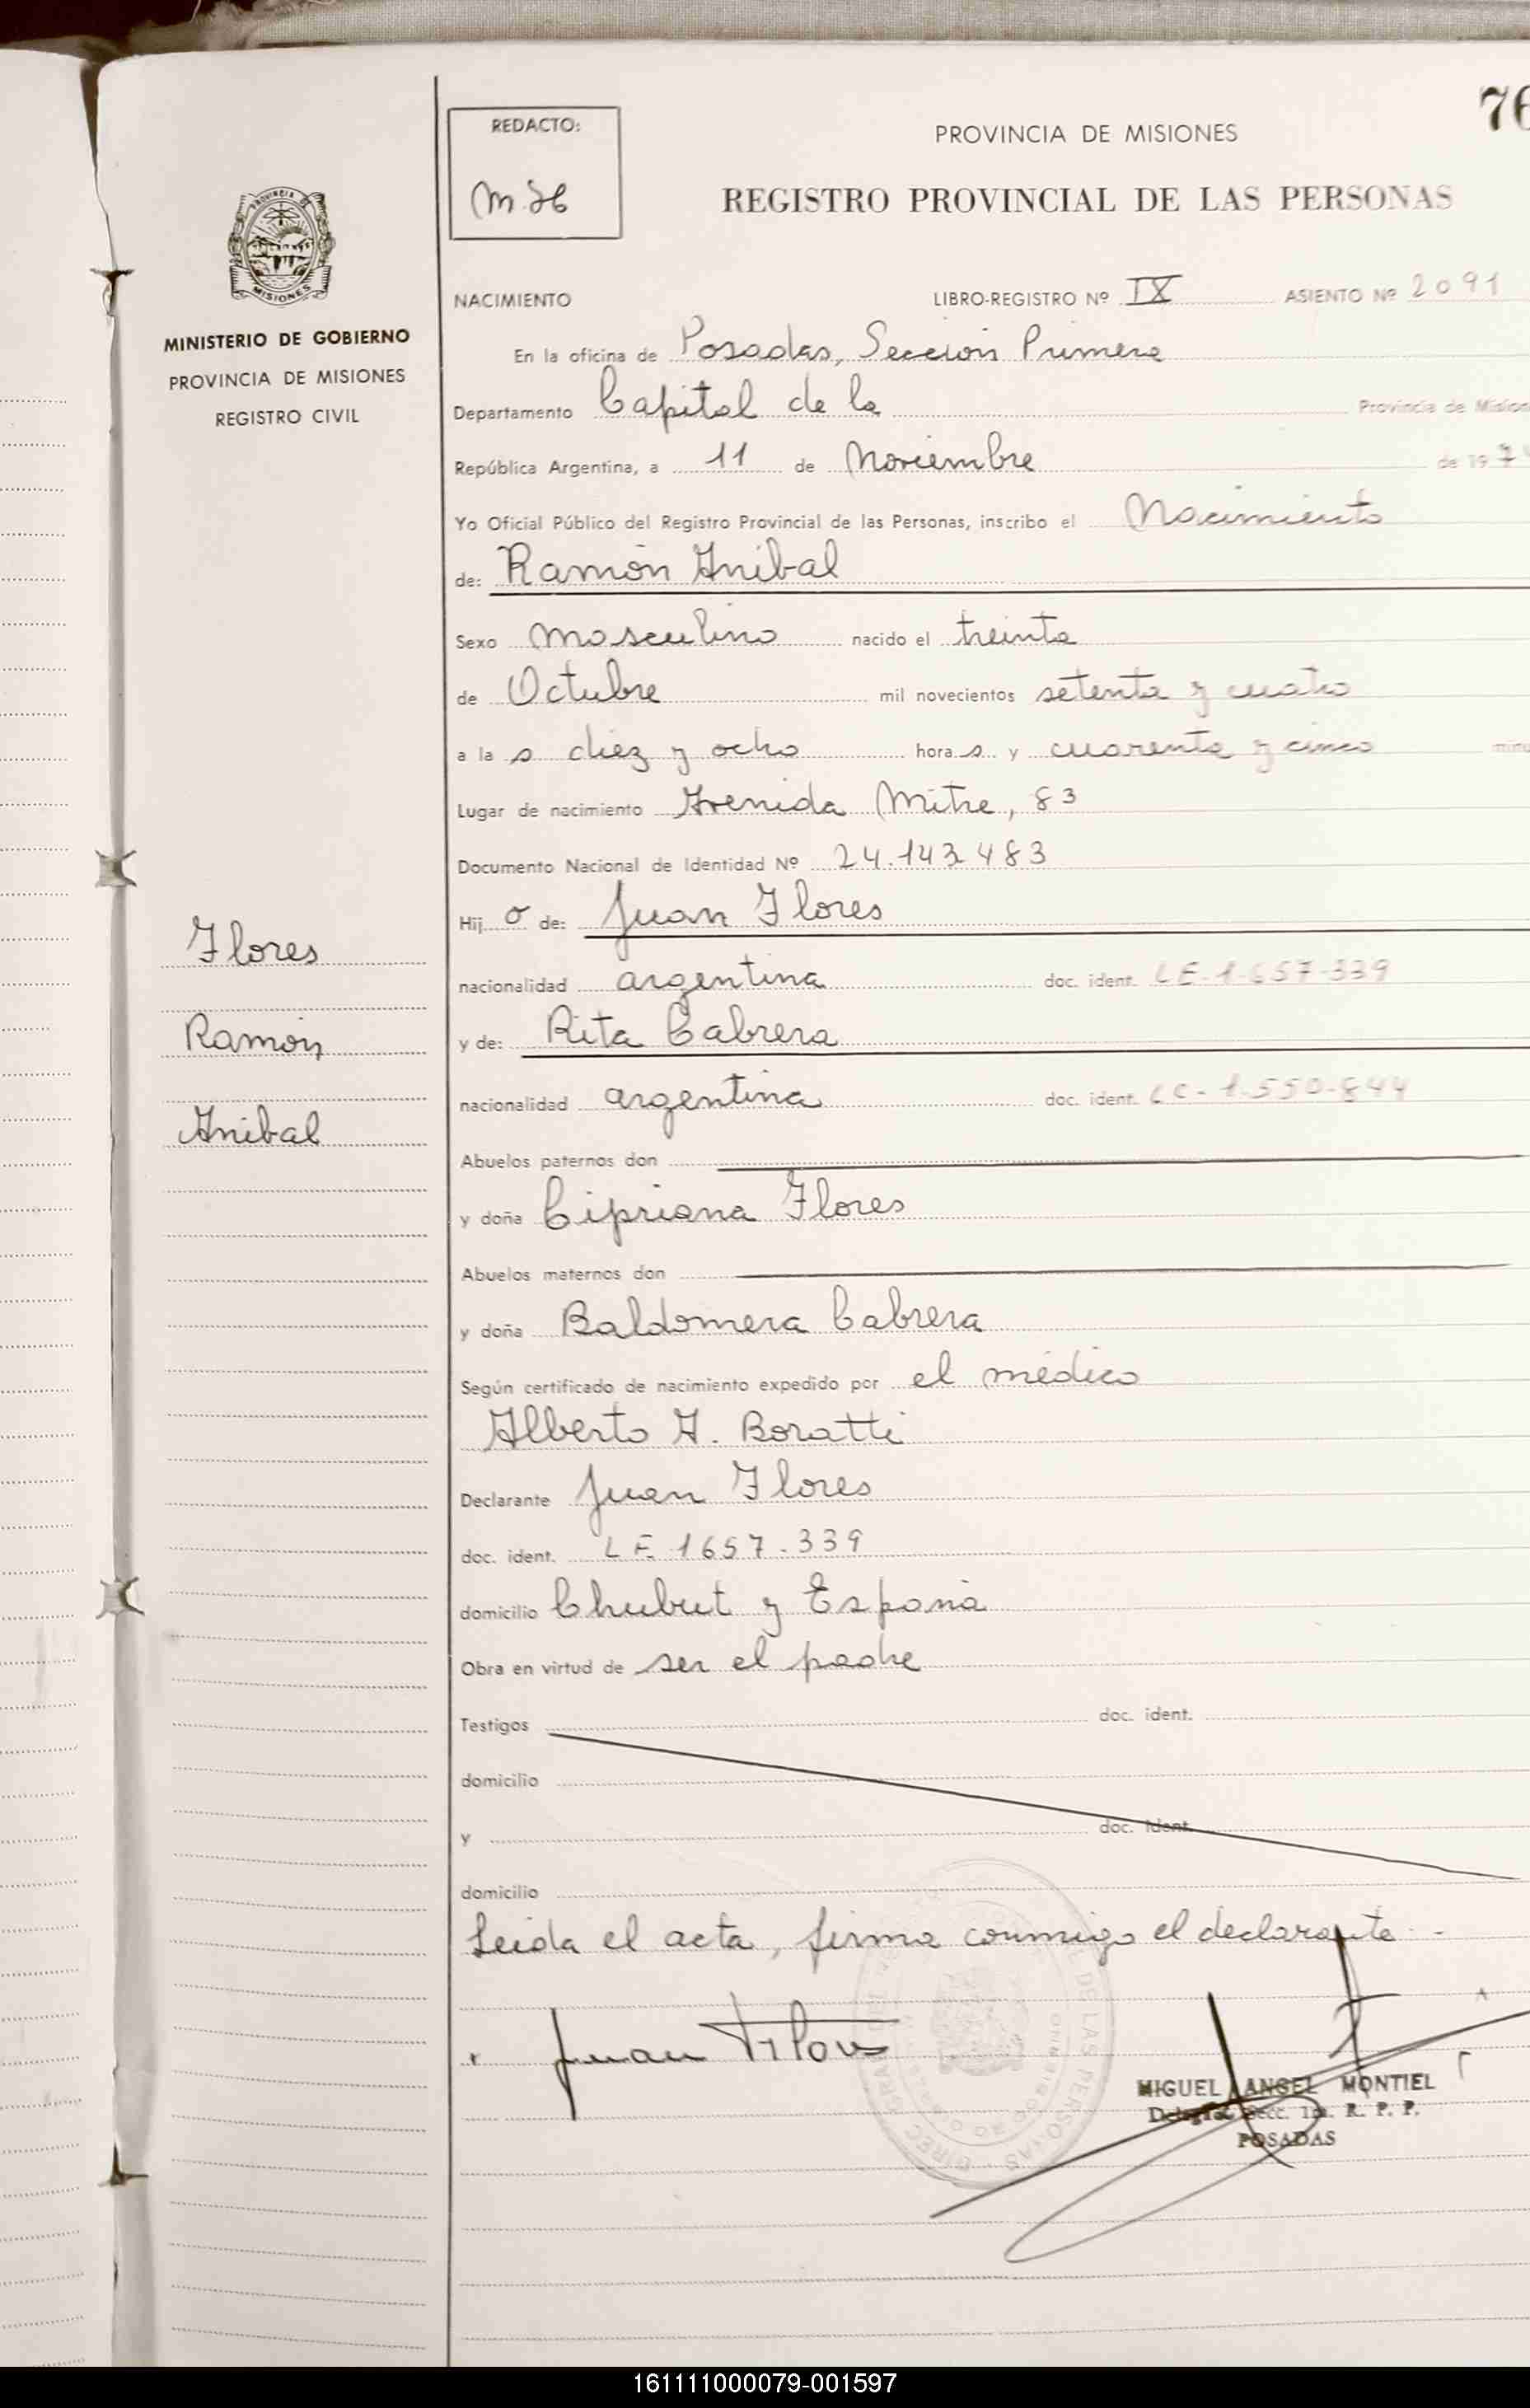 76
REDACTO:
PROVINCIA DE MISIONES
REGISTRO PROVINCIAL DE LAS PERSONAS
PROVINCIA MISIONES
MINISTERIO DE GOBIERNO
PROVINCIA DE MISIONES
REGISTRO CIVIL
NACIMIENTO LIBRO-REGISTRO Nº IX ASIENTO Nº 2091
En la oficina de Posadas, Sección Primera
Departamento Capital de la Provincia de Mision
República Argentina, a 11 de Noviembre de 197
Yo Oficial Público del Registro Provincial de las Personas, inscribo el Nacimiento
de: Ramón Anibal
Sexo masculino nacido el treinta
de Octubre mil novecientos setenta y cuatro
a la s diez y ocho hora s y cuarenta y cinco minu
Lugar de nacimiento Avenida Mitre, 83
Documento Nacional de Identidad Nº 24.143.483
Hij o de: Juan Flores
nacionalidad argentina doc. ident. LE-1-657-339
y de: Rita Cabrera
nacionalidad argentina doc. ident. LC-1.550-844
Abuelos paternos don
y doña Cipriana Flores
Abuelos maternos don
y doña Baldomera Cabrera
Según certificado de nacimiento expedido por el médico
Alberto A. Boratti
Declarante Juan Flores
doc. ident. LE. 1657.339
domicilio Chubut y España
Obra en virtud de ser el padre
Testigos doc. ident.
domicilio
y doc. ident.
domicilio
Leida el acta, firma conmigo el declarante.-
Juan Flores
MIGUEL ANGEL MONTIEL
Secc. 1ra. R. P. P.
POSADAS
Flores
Ramón
Anibal
161111000079-001597